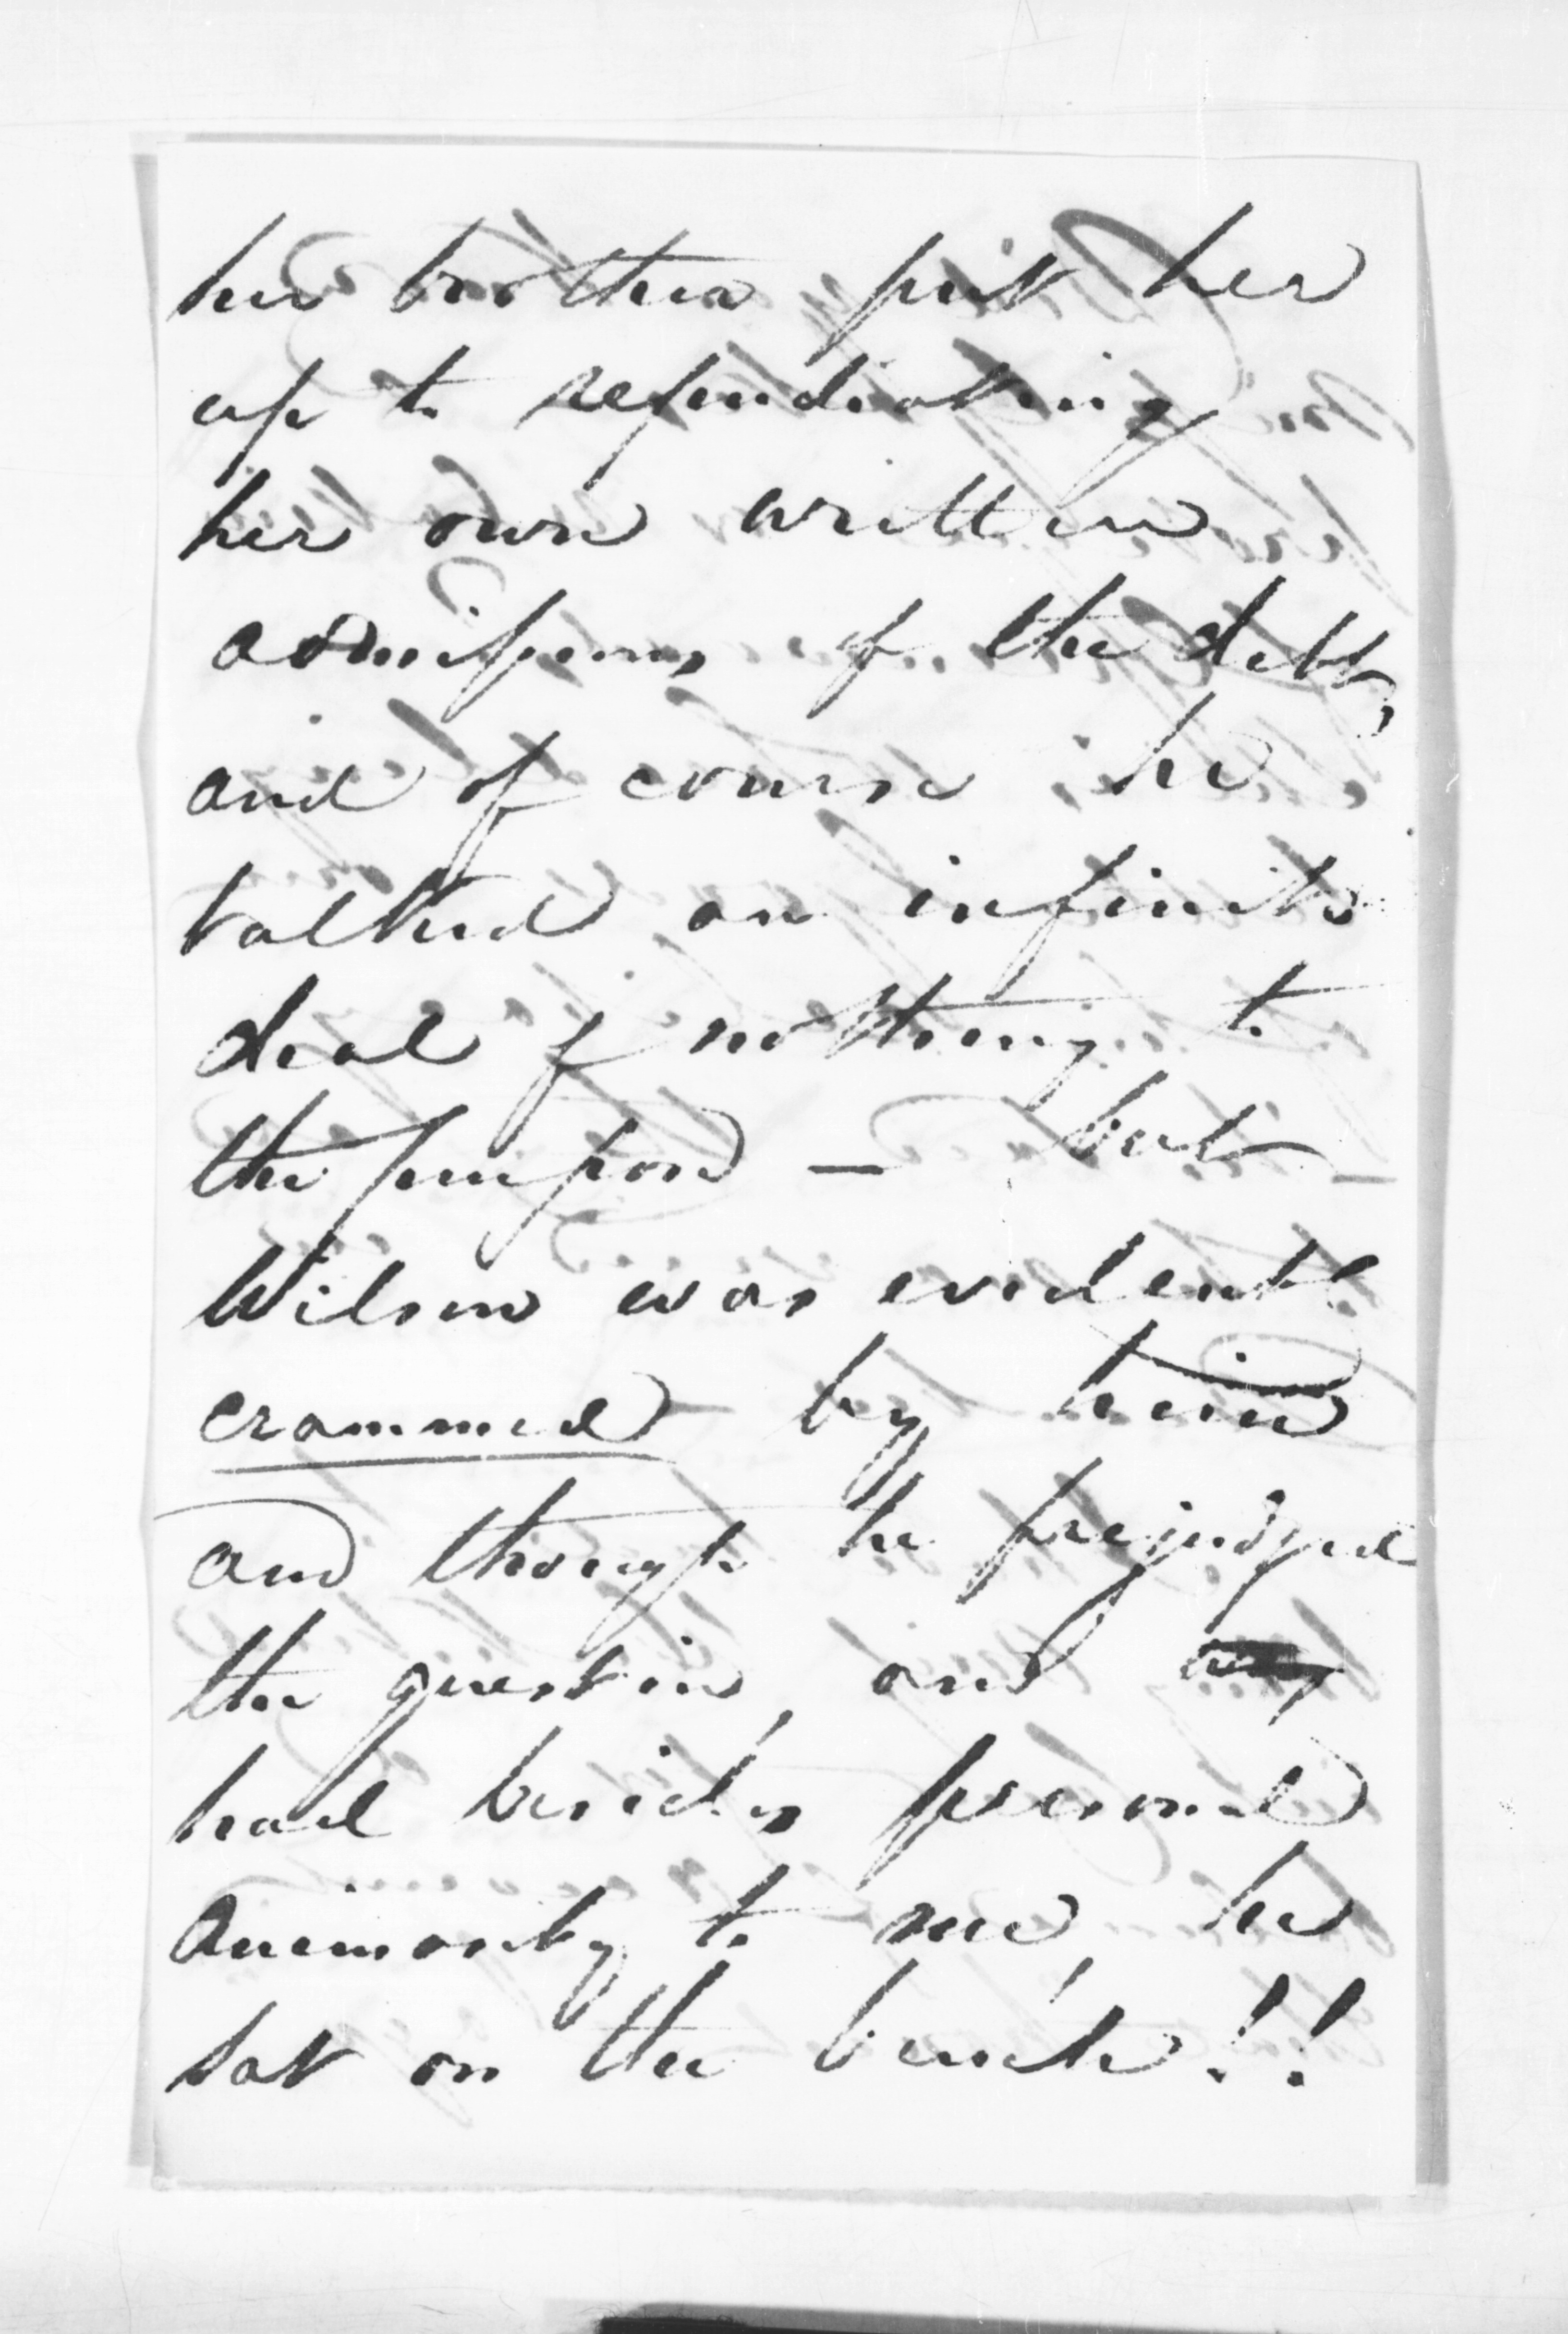 her brother put her
up to repudiating
her own written
admissions of the debt,
and of course he
talked an infinite
deal of nothing to
the purpose — but —
Wilson was evidently
crammed by him
and though he prejudged
the question, and
had besides personal
animosity to me, he
sat on the bench!!